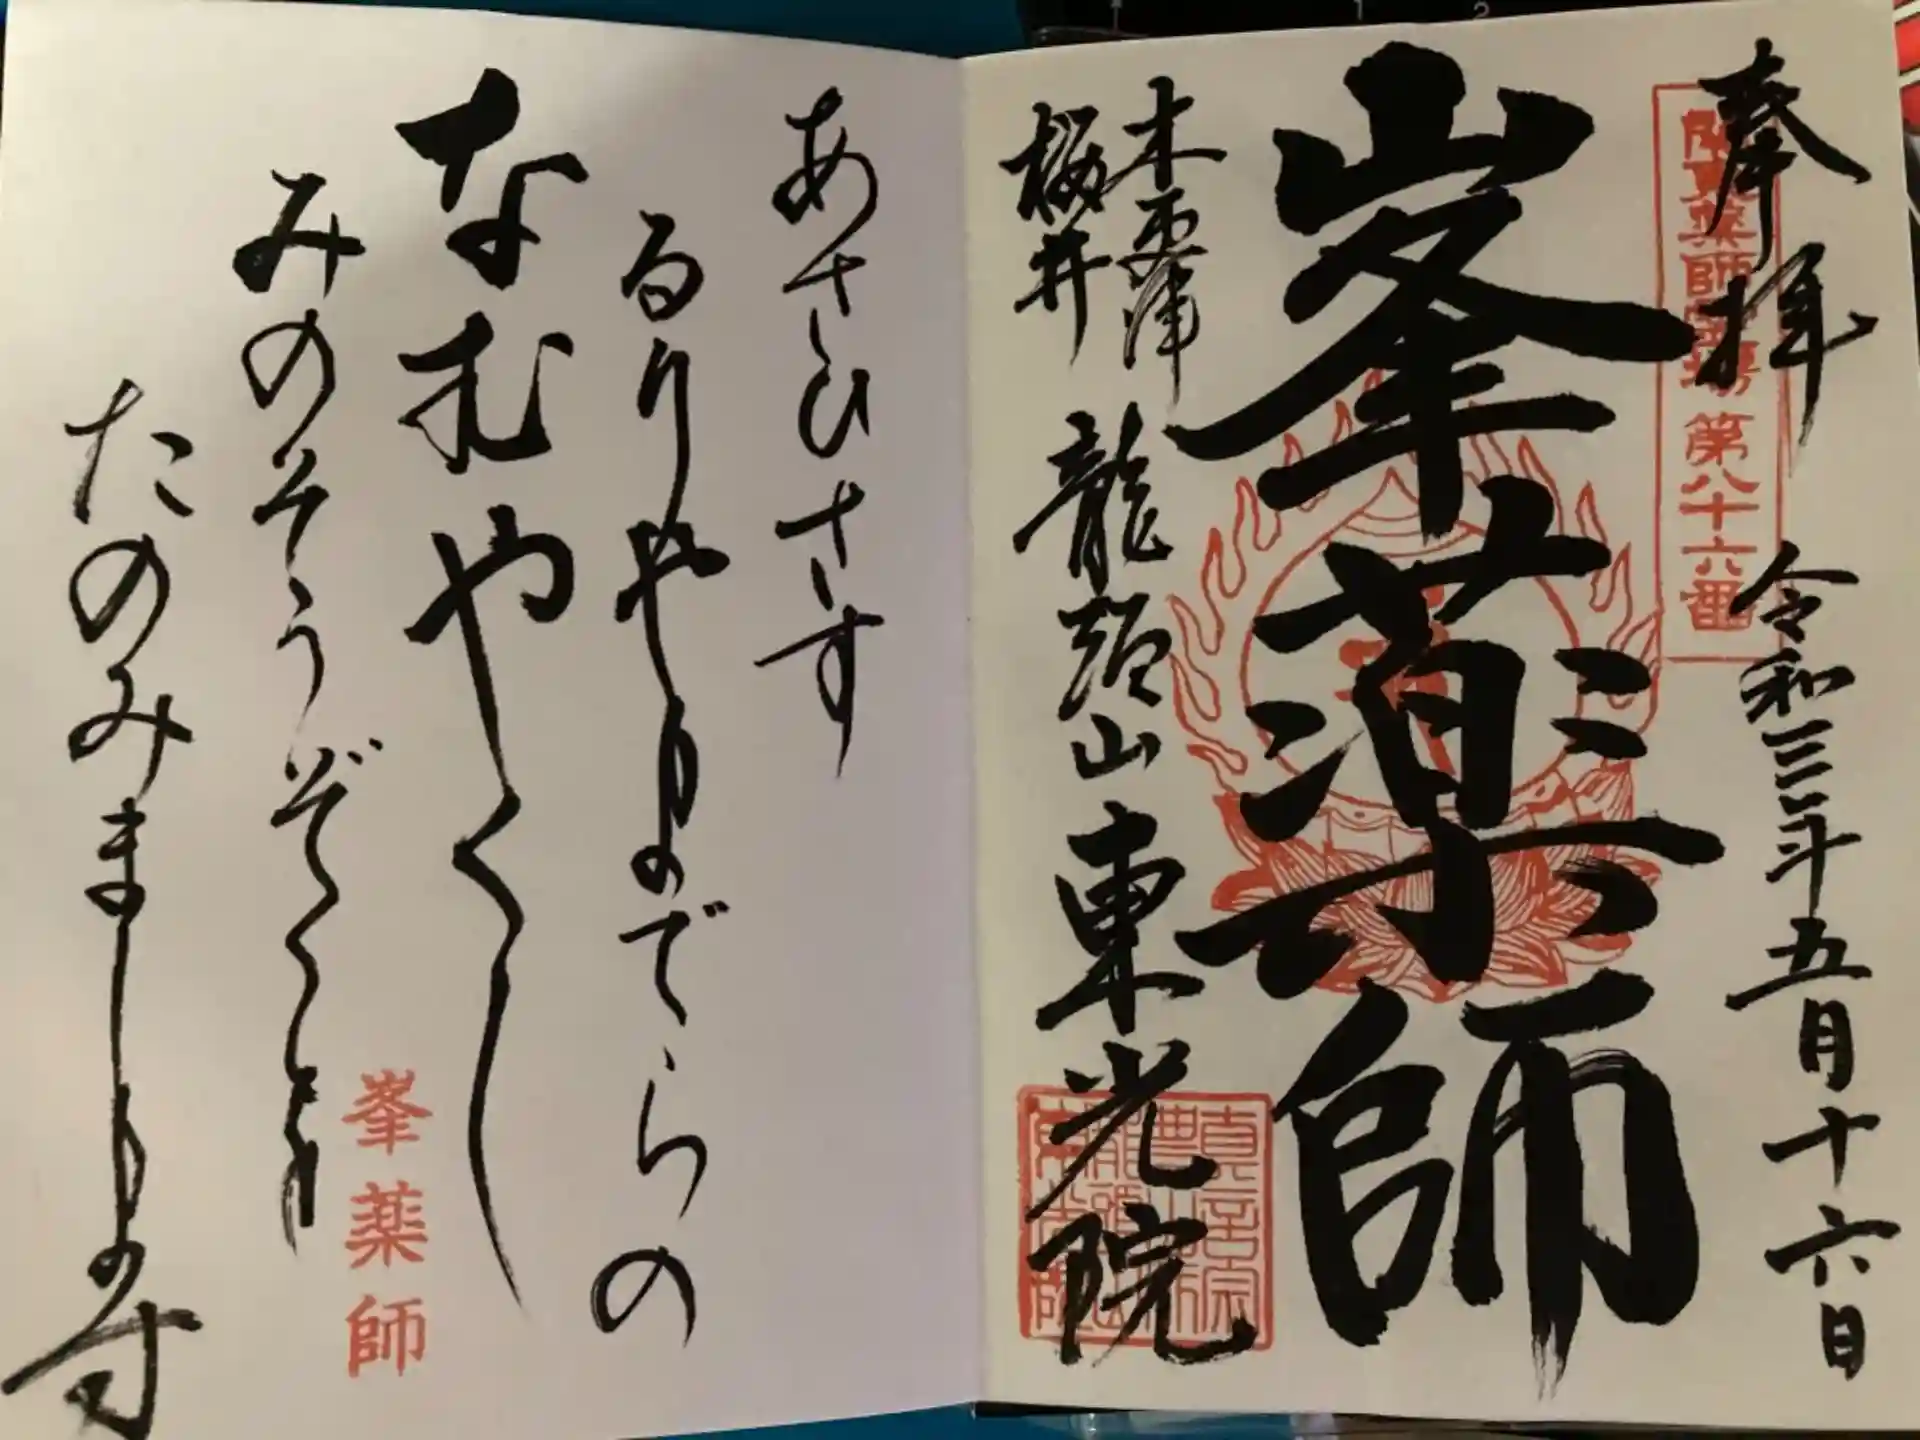 奉拝
令和三年五月十六日
関東薬師霊場第八十六番
峯薬師
木更津
桜井
龍頭山東光院
あさひさす
るりやまのでらの
なむやくし
みのそうぞくを
たのみまします
峯薬師